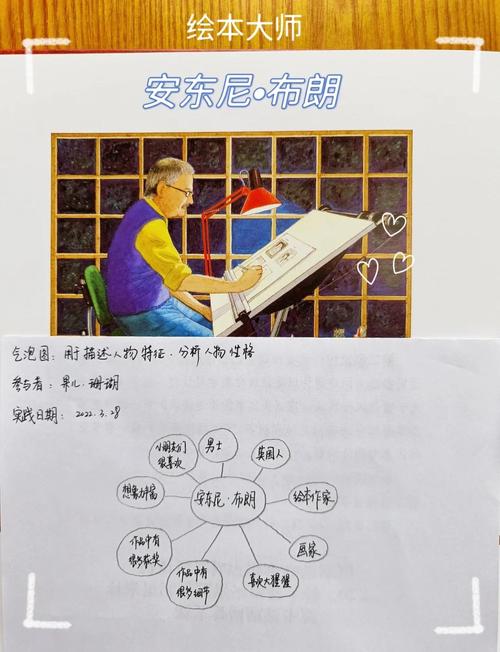 绘本大师
安东尼•布朗
气泡图：用于描述人物特征、分析人物性格
参与者：果儿、珊瑚
实践日期：2022.3.28
小朋友们
很喜欢
男士
英国人
想象力丰富
安东尼·布朗
绘本作家
作品中有
很多获奖
作品中有
很多细节
喜欢大猩猩
画家